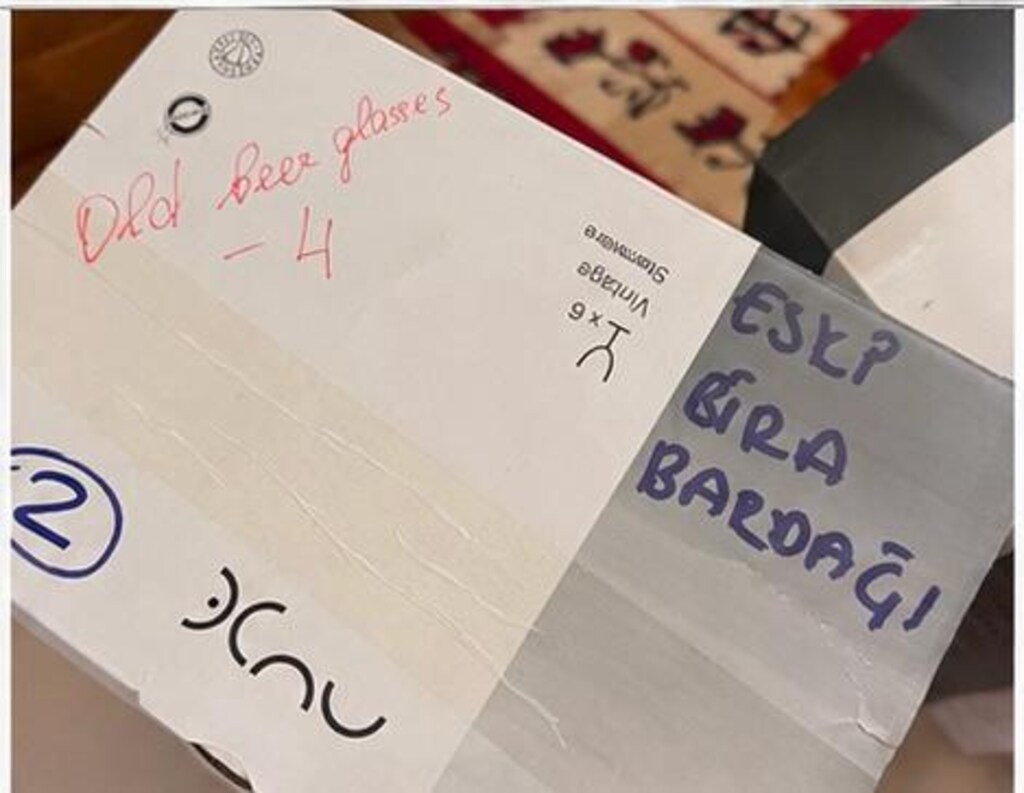 Old beer glasses
- 4
Stemware
Vintage
6 x
2
ESKİ
BİRA
BARDAĞI